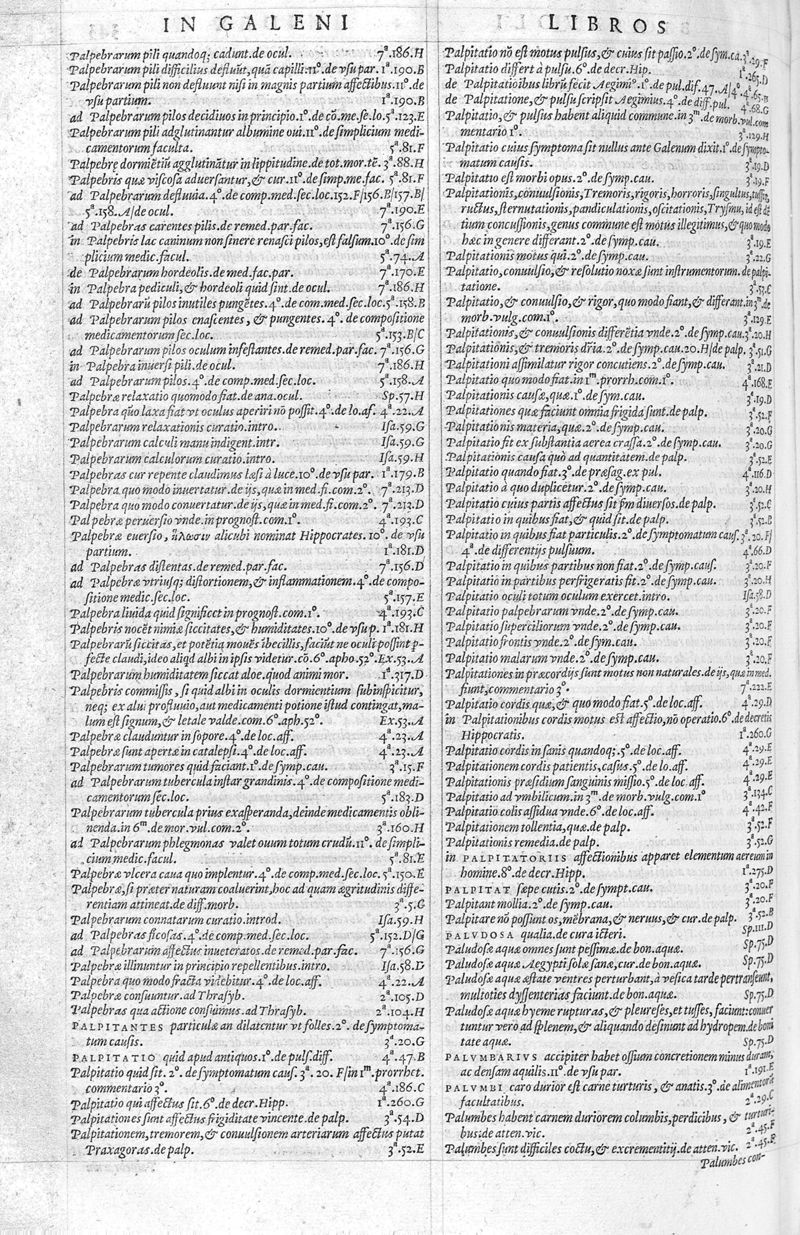 IN GALENI
Palpebrarum pili quandoq; cadunt.de ocul. 7ª.186.H
Palpebrarum pili difficilius defluūt, quā capilli.11º.de vsu par. 1ª.190.B
Palpebrarum pili non defluunt nisi in magnis partium affectibus.11º.de
vsu partium. 1ª.190.B
ad Palpebrarum pilos deciduos in principio.1º.de cō.me.se.lo.5ª.123.E
Palpebrarum pili adglutinantur albumine oui.11º.de simplicium medi-
camentorum faculta. 5ª.81.F
Palpebrę dormiētiū agglutinātur in lippitudine.de tot.mor.tē. 3ª.88.H
Palpebris quæ viscosa aduersantur, & cur.11º.de simp.me.fac. 5ª.81.F
ad Palpebrarum defluuia.4º.de comp.med.sec.loc.152.F/156.B/157.B/
5ª.158.A/de ocul. 7ª.190.E
ad Palpebras carentes pilis.de remed.par.fac. 7ª.156.G
in Palpebris lac caninum non sinere renasci pilos, est falsum.10º.de sim
plicium medic.facul. 5ª.74.A
de Palpebrarum hordeolis.de med.fac.par. 7ª.170.E
in Palpebra pediculi, & hordeoli quid sint.de ocul. 7ª.186.H
ad Palpebrarū pilos inutiles pungētes.4º.de com.med.sec.loc.5ª.158.B
ad Palpebrarum pilos enascentes, & pungentes.4º.de compositione
medicamentorum sec.loc. 5ª.153.B/C
ad Palpebrarum pilos oculum infestantes.de remed.par.fac. 7ª.156.G
in Palpebra inuersi pili.de ocul. 7ª.186.H
ad Palpebrarum pilos.4º.de comp.med.sec.loc. 5ª.158.A
Palpebræ relaxatio quomodo fiat.de ana.ocul. Sp.57.H
Palpebra quo laxa fiat vt oculus aperiri nō possit.4º.de lo.af. 4ª.22.A
Palpebrarum relaxationis curatio.intro. Isa.59.G
Palpebrarum calculi manu indigent.intr. Isa.59.G
Palpebrarum calculorum curatio.intro. Isa.59.H
Palpebras cur repente claudimus læsi à luce.10º.de vsu par. 1ª.179.B
Palpebra quo modo inuertatur.de ijs, quæ in med.fi.com.2º. 7ª.213.D
Palpebra quo modo conuertatur.de ijs, quæ in med.fi.com.2º. 7ª.213.D
Palpebræ peruersio vnde.in prognost.com.1º. 4ª.193.C
Palpebræ euersio, alicubi nominat Hippocrates. 10º. de vsu
partium. 1ª.181.D
ad Palpebras distentas.de remed.par.fac. 7ª.156.D
ad Palpebræ vtriusq; distortionem, & inflammationem.4º.de compo-
sitione medic.sec.loc. 5ª.157.E
Palpebra liuida quid significet in prognost.com.1º. 4ª.193.C
Palpebris nocēt nimiæ siccitates, & humiditates.10º.de vsu p. 1ª.181.H
Palpebrarū siccitas, et potētia mouēs ībecillis, faciūt ne oculi possint p-
fecte claudi, ideo aliqd albi in ipsis videtur.cō.6º.apho.52º.Ex.53.A
Palpebrarum humiditatem siccat aloe.quod animi mor. 1ª.317.D
Palpebris commissis, si quid albi in oculis dormientium subinspicitur,
neq; ex alui profluuio, aut medicamenti potione istud contingat, ma-
lum est signum, & letale valde.com.6º.aph.52º. Ex.53.A
Palpebræ clauduntur in sopore.4º.de loc.aff. 4ª.23.A
Palpebræ sunt apertæ in catalepsi.4º.de loc.aff. 4ª.23.A
Palpebrarum tumores quid faciant.1º.de symp.cau. 3ª.15.F
ad Palpebrarum tubercula instar grandinis.4º.de compositione medi-
camentorum sec.loc. 5ª.183.D
Palpebrarum tubercula prius exasperanda, deinde medicamentis obli-
nenda.in 6ᵐ.de mor.vul.com.2º. 3ª.160.H
ad Palpebrarum phlegmonas valet ouum totum crudū.11º.de simpli-
cium medic.facul. 5ª.81.E
Palpebræ vlcera caua quo implentur.4º.de comp.med.sec.loc. 5ª.150.E
Palpebræ, si præter naturam coaluerint, hoc ad quam ægritudinis diffe-
rentiam attineat.de diff.morb. 3ª.5.G
Palpebrarum connatarum curatio.introd. Isa.59.H
ad Palpebras ficosas.4º.de comp.med.sec.loc. 5ª.152.D/G
ad Palpebrarum affectus inueteratos.de remed.par.fac. 7ª.156.G
Palpebræ illinuntur in principio repellentibus.intro. Isa.58.G
Palpebra quo modo fracta videbitur.4º.de loc.aff. 4ª.22.A
Palpebræ consuuntur.ad Thrasyb. 2ª.105.D
Palpebras qua actione consuimus.ad Thrasyb. 2ª.104.H
PALPITANTES particulæ an dilatentur vt folles.2º. de symptoma-
tum causis. 3ª.20.G
PALPITATIO quid apud antiquos.1º.de puls.diff. 4ª.47.B
Palpitatio quid sit. 2º. de symptomatum caus. 3ª. 20. F/in 1ᵐ.prorrhet.
commentario 3º. 4ª.186.C
Palpitatio qui affectus sit.6º.de decr.Hipp. 1ª.260.G
Palpitationes sunt affectus frigiditate vincente.de palp. 3ª.54.D
Palpitationem, tremorem, & conuulsionem arteriarum affectus putat
Praxagoras.de palp. 3ª.52.E
LIBROS
Palpitatio nō est motus pulsus, & cuius sit passio.2º.de sym.ca.3ª.29.F
Palpitatio differt à pulsu.6º.de decr.Hip. 1ª.265.D
de Palpitatioibus librū fecit Aegimiº.1º.de pul.dif.47.A/4º.
de Palpitatione, & pulsu scripsit Aegimius.4º.de diff.pul. 4ª.68.G
Palpitatio, & pulsus habent aliquid commune.in 3ᵐ.de morb.vul.com
mentario 1º. 3ª.129.H
Palpitatio cuius symptoma sit nullus ante Galenum dixit.1º.de sympto-
matum causis. 3ª.19.D
Palpitatio est morbi opus.2º.de symp.cau. 3ª.19.F
Palpitationis, conuulsionis, Tremoris, rigoris, horroris, singultus, tussis,
ructus, sternutationis, pandiculationis, oscitationis, Trysmu, id est dē
tium concussionis, genus commune est motus illegitimus, & quo modo
hæc in genere differant.2º.de symp.cau. 3ª.19.E
Palpitationis motus qui.2º.de symp.cau. 3ª.22.G
Palpitatio, conuulsio, & resolutio noxæ sunt instrumentorum.de palpi-
tatione. 3ª.53.C
Palpitatio, & conuulsio, & rigor, quo modo fiant, & differant.in 3ᵐ.de
morb.vulg.com.1º. 3ª.129.E
Palpitationis, & conuulsionis differētia vnde.2º.de symp.cau.3ª.20.H
Palpitationis, & tremoris dria.2º.de symp.cau.20.H/de palp. 3ª.51.G
Palpitationi assimilatur rigor concutiens.2º.de symp.cau. 3ª.21.D
Palpitatio quo modo fiat.in 1ᵐ.prorrh.com.1º. 4ª.168.E
Palpitationis causæ, quæ.1º.de sym.cau. 3ª.19.D
Palpitationes quæ faciunt omnia frigida sunt.de palp. 3ª.52.F
Palpitationis materia, quæ.2º.de symp.cau. 3ª.20.G
Palpitatio fit ex substantia aerea crassa.2º.de symp.cau. 3ª.20.G
Palpitationis causa quò ad quantitatem.de palp. 3ª.52.E
Palpitatio quando fiat.3º.de præsag.ex pul. 4ª.116.D
Palpitatio à quo duplicetur.2º.de symp.cau. 3ª.20.H
Palpitatio cuius partis affectus sit fm diuersos.de palp. 3ª.52.C
Palpitatio in quibus fiat, & quid sit.de palp. 3ª.52.B
Palpitatio in quibus fiat particulis.2º.de symptomatum caus.3ª.20.F/
4ª.de differentijs pulsuum. 4ª.66.D
Palpitatio in quibus partibus non fiat.2º.de symp.caus. 3ª.20.F
Palpitatio in partibus perfrigeratis fit.2º.de symp.cau. 3ª.20.H
Palpitatio oculi totum oculum exercet.intro. Isa.58.D
Palpitatio palpebrarum vnde.2º.de symp.cau. 3ª.20.F
Palpitatio superciliorum vnde.2º.de symp.cau. 3ª.20.F
Palpitatio frontis vnde.2º.de sym.cau. 3ª.20.F
Palpitatio malarum vnde.2º.de symp.cau. 3ª.20.F
Palpitationes in præcordijs sunt motus non naturales.de ijs, quæ in med.
fiunt, commentario 3º. 7ª.222.E
Palpitatio cordis quæ, & quo modo fiat.5º.de loc.aff. 4ª.29.D
in Palpitationibus cordis motus est affectio, nō operatio.6º.de decretis
Hippocratis. 1ª.260.G
Palpitatio cordis in sanis quandoq;.5º.de loc.aff. 4ª.29.E
Palpitationem cordis patientis, casus.5º.de lo.aff. 4ª.29.E
Palpitationis præsidium sanguinis missio.5º.de loc.aff. 4ª.29.E
Palpitatio ad vmbilicum.in 3ᵐ.de morb.vulg.com.1º 3ª.134.C
Palpitatio colis assidua vnde.6º.de loc.aff. 4ª.42.F
Palpitationem tollentia, quæ.de palp. 3ª.52.F
Palpitationis remedia.de palp. 3ª.52.G
in PALPITATORIIS affectionibus apparet elementum aereum in
homine.8º.de decr.Hipp. 1ª.275.D
PALPITAT sæpe cutis.2º.de sympt.cau. 3ª.20.F
Palpitant mollia.2º.de symp.cau. 3ª.20.F
Palpitare nō possunt os, mēbrana, & neruus, & cur.de palp. 3ª.52.B
PALVDOSA qualia.de cura icteri. Sp.111.D
Paludosæ aquæ omnes sunt pessimæ.de bon.aquæ. Sp.75.D
Paludosæ aquæ Aegypti solæ sanæ, cur.de bon.aquæ. Sp.75.D
Paludosæ aquæ æstate ventres perturbant, à vesica tarde pertranseunt,
multoties dyssenterias faciunt.de bon.aquæ. Sp.75.D
Paludosæ aquæ hyeme rupturas, & pleureses, et tusses, faciunt: conuer
tuntur verò ad splenem, & aliquando desinunt ad hydropem.de boni
tate aquæ. Sp.75.D
PALVMBARIVS accipiter habet ossium concretionem minus duram,
ac densam aquilis.11º.de vsu par. 1ª.191.E
PALVMBI caro durior est carne turturis, & anatis.3º.de alimentorū
facultatibus. 2ª.29.C
Palumbes habent carnem duriorem columbis, perdicibus, & turturi-
bus.de atten.vic. 2ª.45.F
Palumbes sunt difficiles coctu, & excrementitij.de atten.vic. 2ª.45.F
Palumbes con-